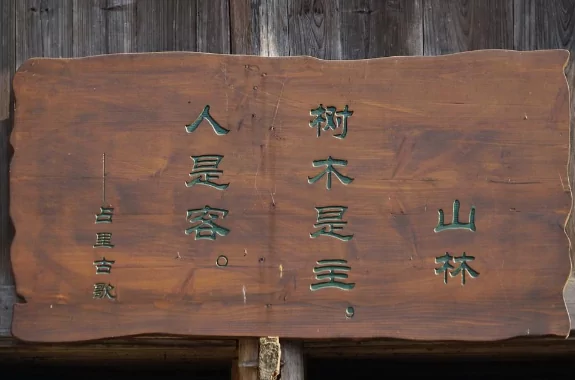 山林
树木是主。
人是客。
——占里古歌